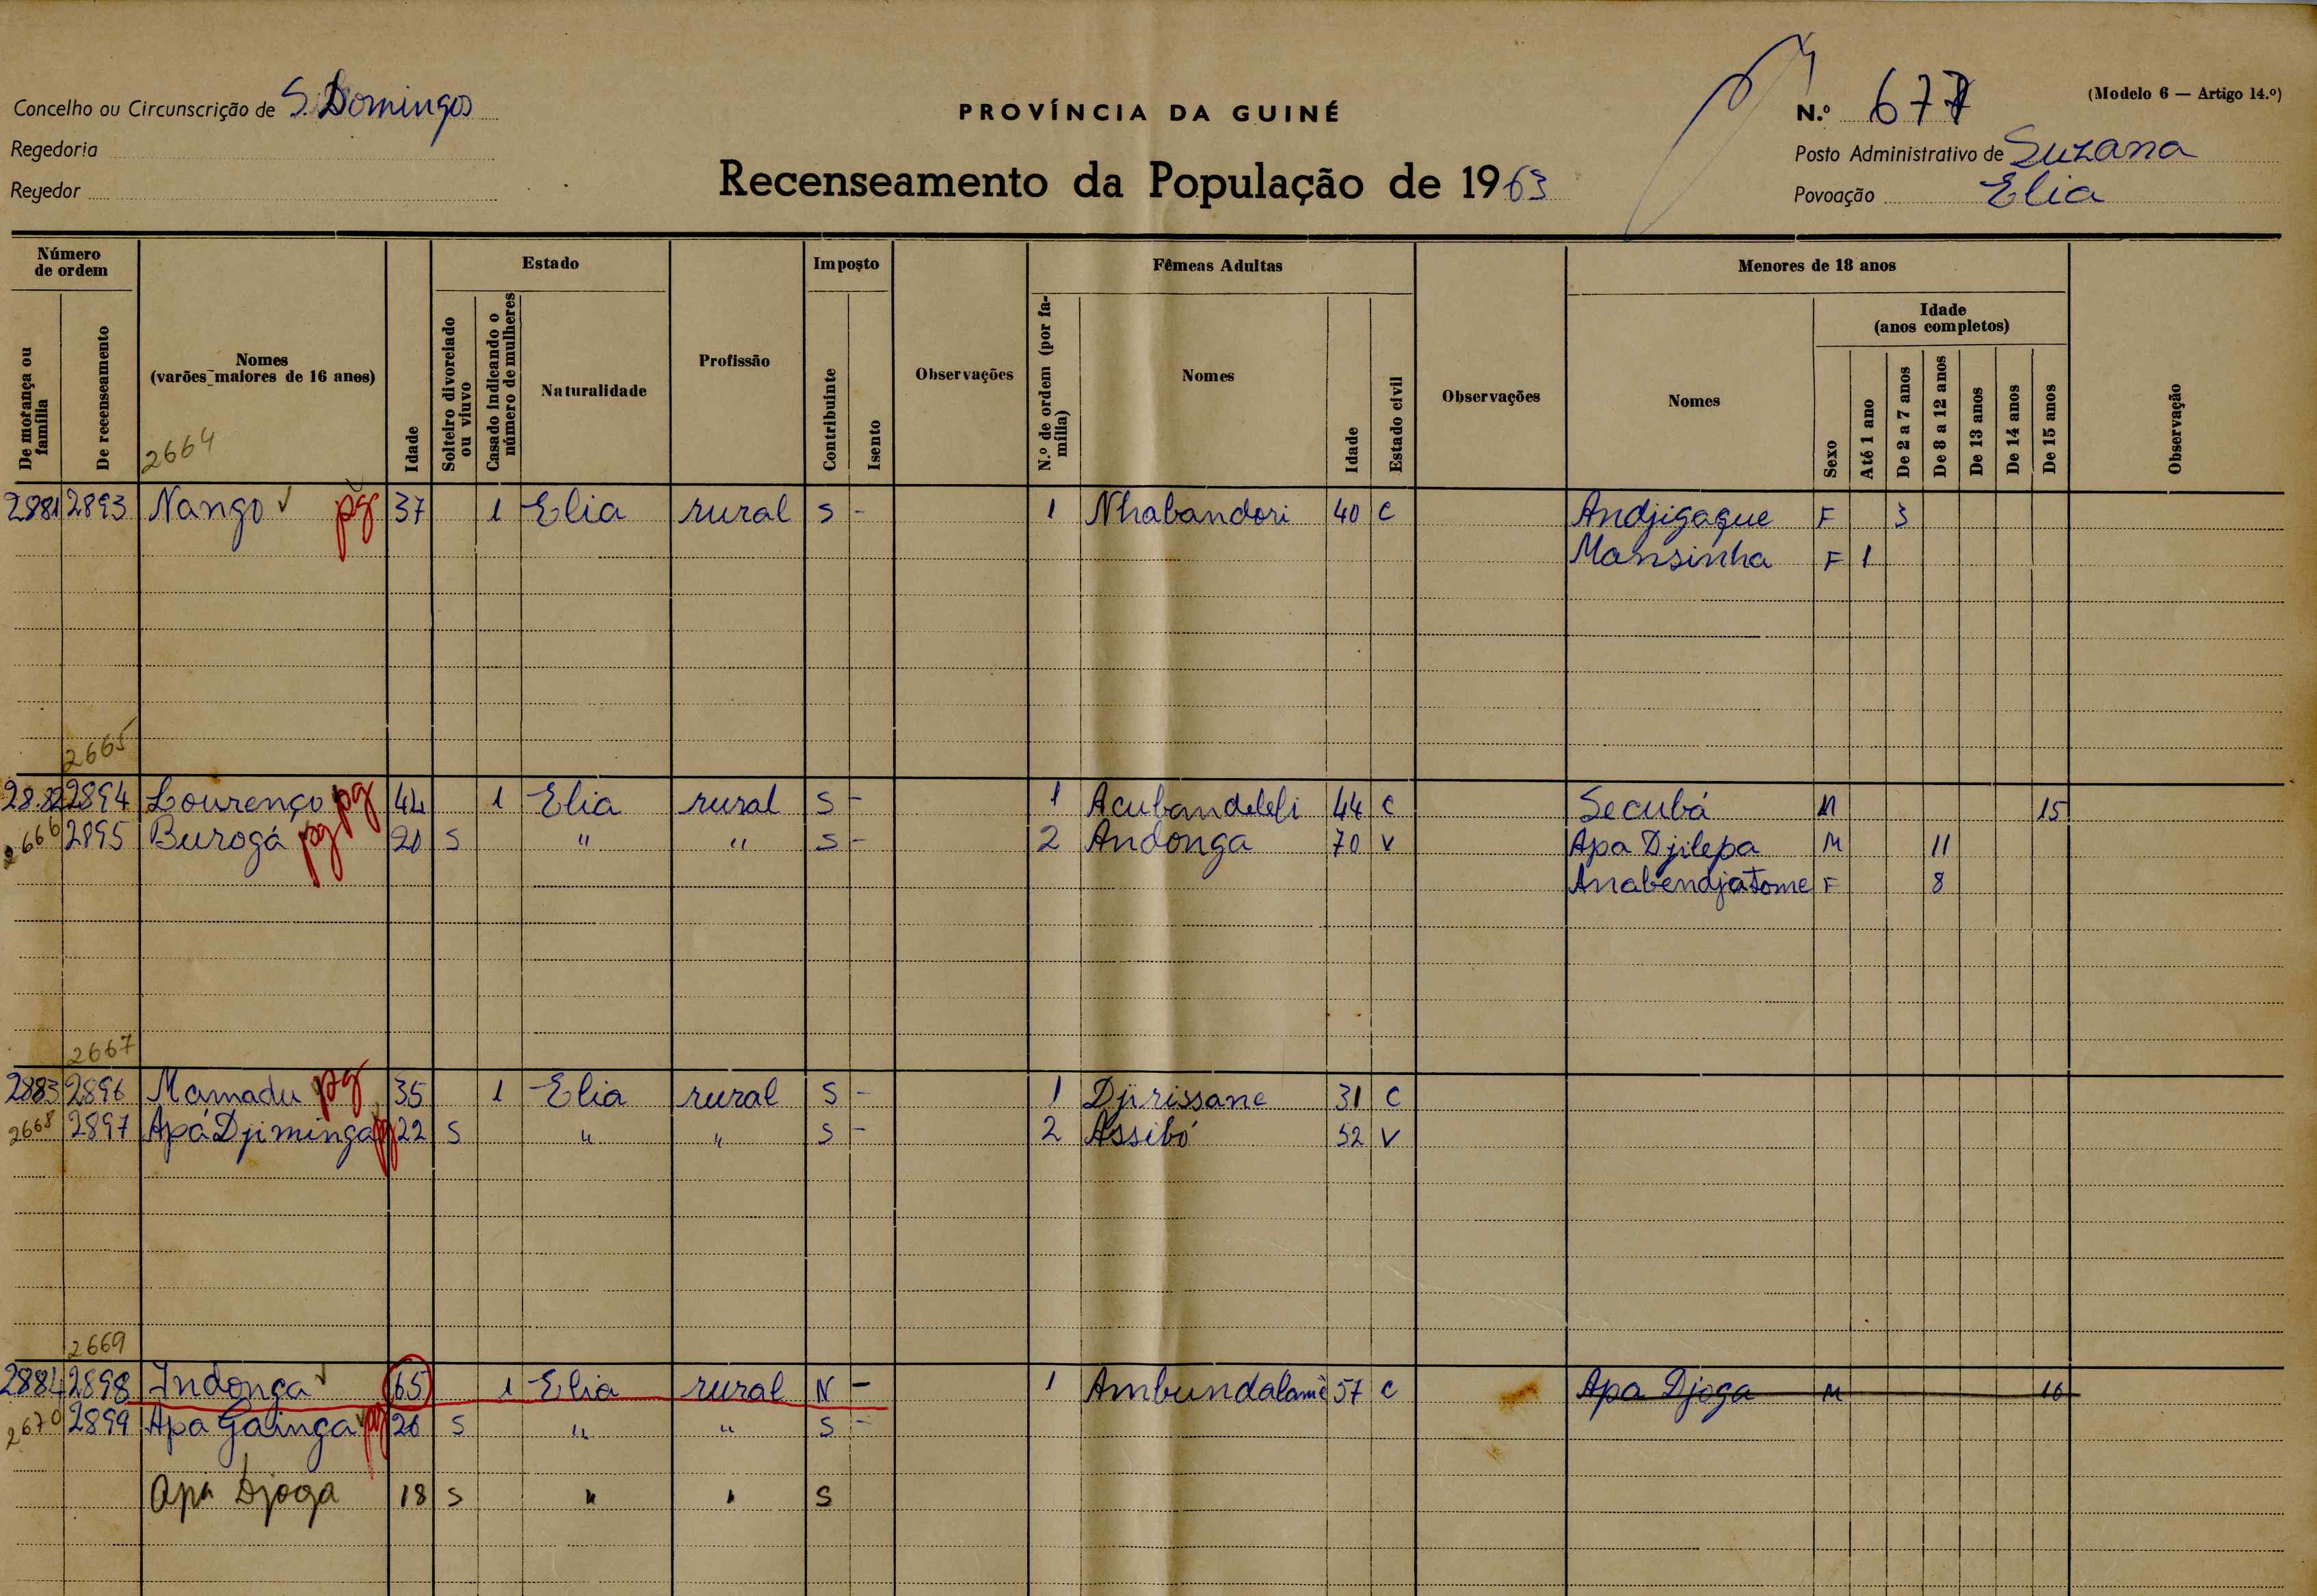 Concelho ou Circunscrição de S. Domingos
Regedoria
Reyedor
PROVÍNCIA DA GUINÉ
Recenseamento da População de 1963
(Modelo 6 — Artigo 14.º)
N.º 677
Posto Administrativo de Suzana
Povoação Elia
Número de ordem
De morança ou família
De recenseamento
Nomes
(varões maiores de 16 anos)
2664
Idade
Estado
Solteiro divorciado ou viuvo
Casado indicando o número de mulheres
Naturalidade
Profissão
Imposto
Contribuinte
Isento
Observações
Fêmeas Adultas
N.º de ordem (por família)
Nomes
Idade
Estado civil
Observações
Menores de 18 anos
Nomes
Sexo
Idade
(anos completos)
Até 1 ano
De 2 a 7 anos
De 8 a 12 anos
De 13 anos
De 14 anos
De 15 anos
Observação
2881 2893 Nango pg 37 1 Elia rural S - 1 Nhabandori 40 C Andjigaque F 3
Mansinha F 1
2665
2882 2894 Lourenço pg 44 1 Elia rural S - 1 Acubandelefi 44 C Secubá M 15
2666 2895 Burogá pg 20 S " " S - 2 Andonga 70 V Apa Djilepa M 11
Anabendjatome F 8
2667
2883 2896 Mamadu pg 35 1 Elia rural S - 1 Djirissane 31 C
2668 2897 Apá Djiminga pg 22 S " " S - 2 Assibó 52 V
2669
2884 2898 Indonga 65 1 Elia rural N - 1 Ambundalamé 57 C Apa Djoga M 16
2670 2899 Apa Gainga pg 20 S " " S -
Apa Djoga 18 S " " S